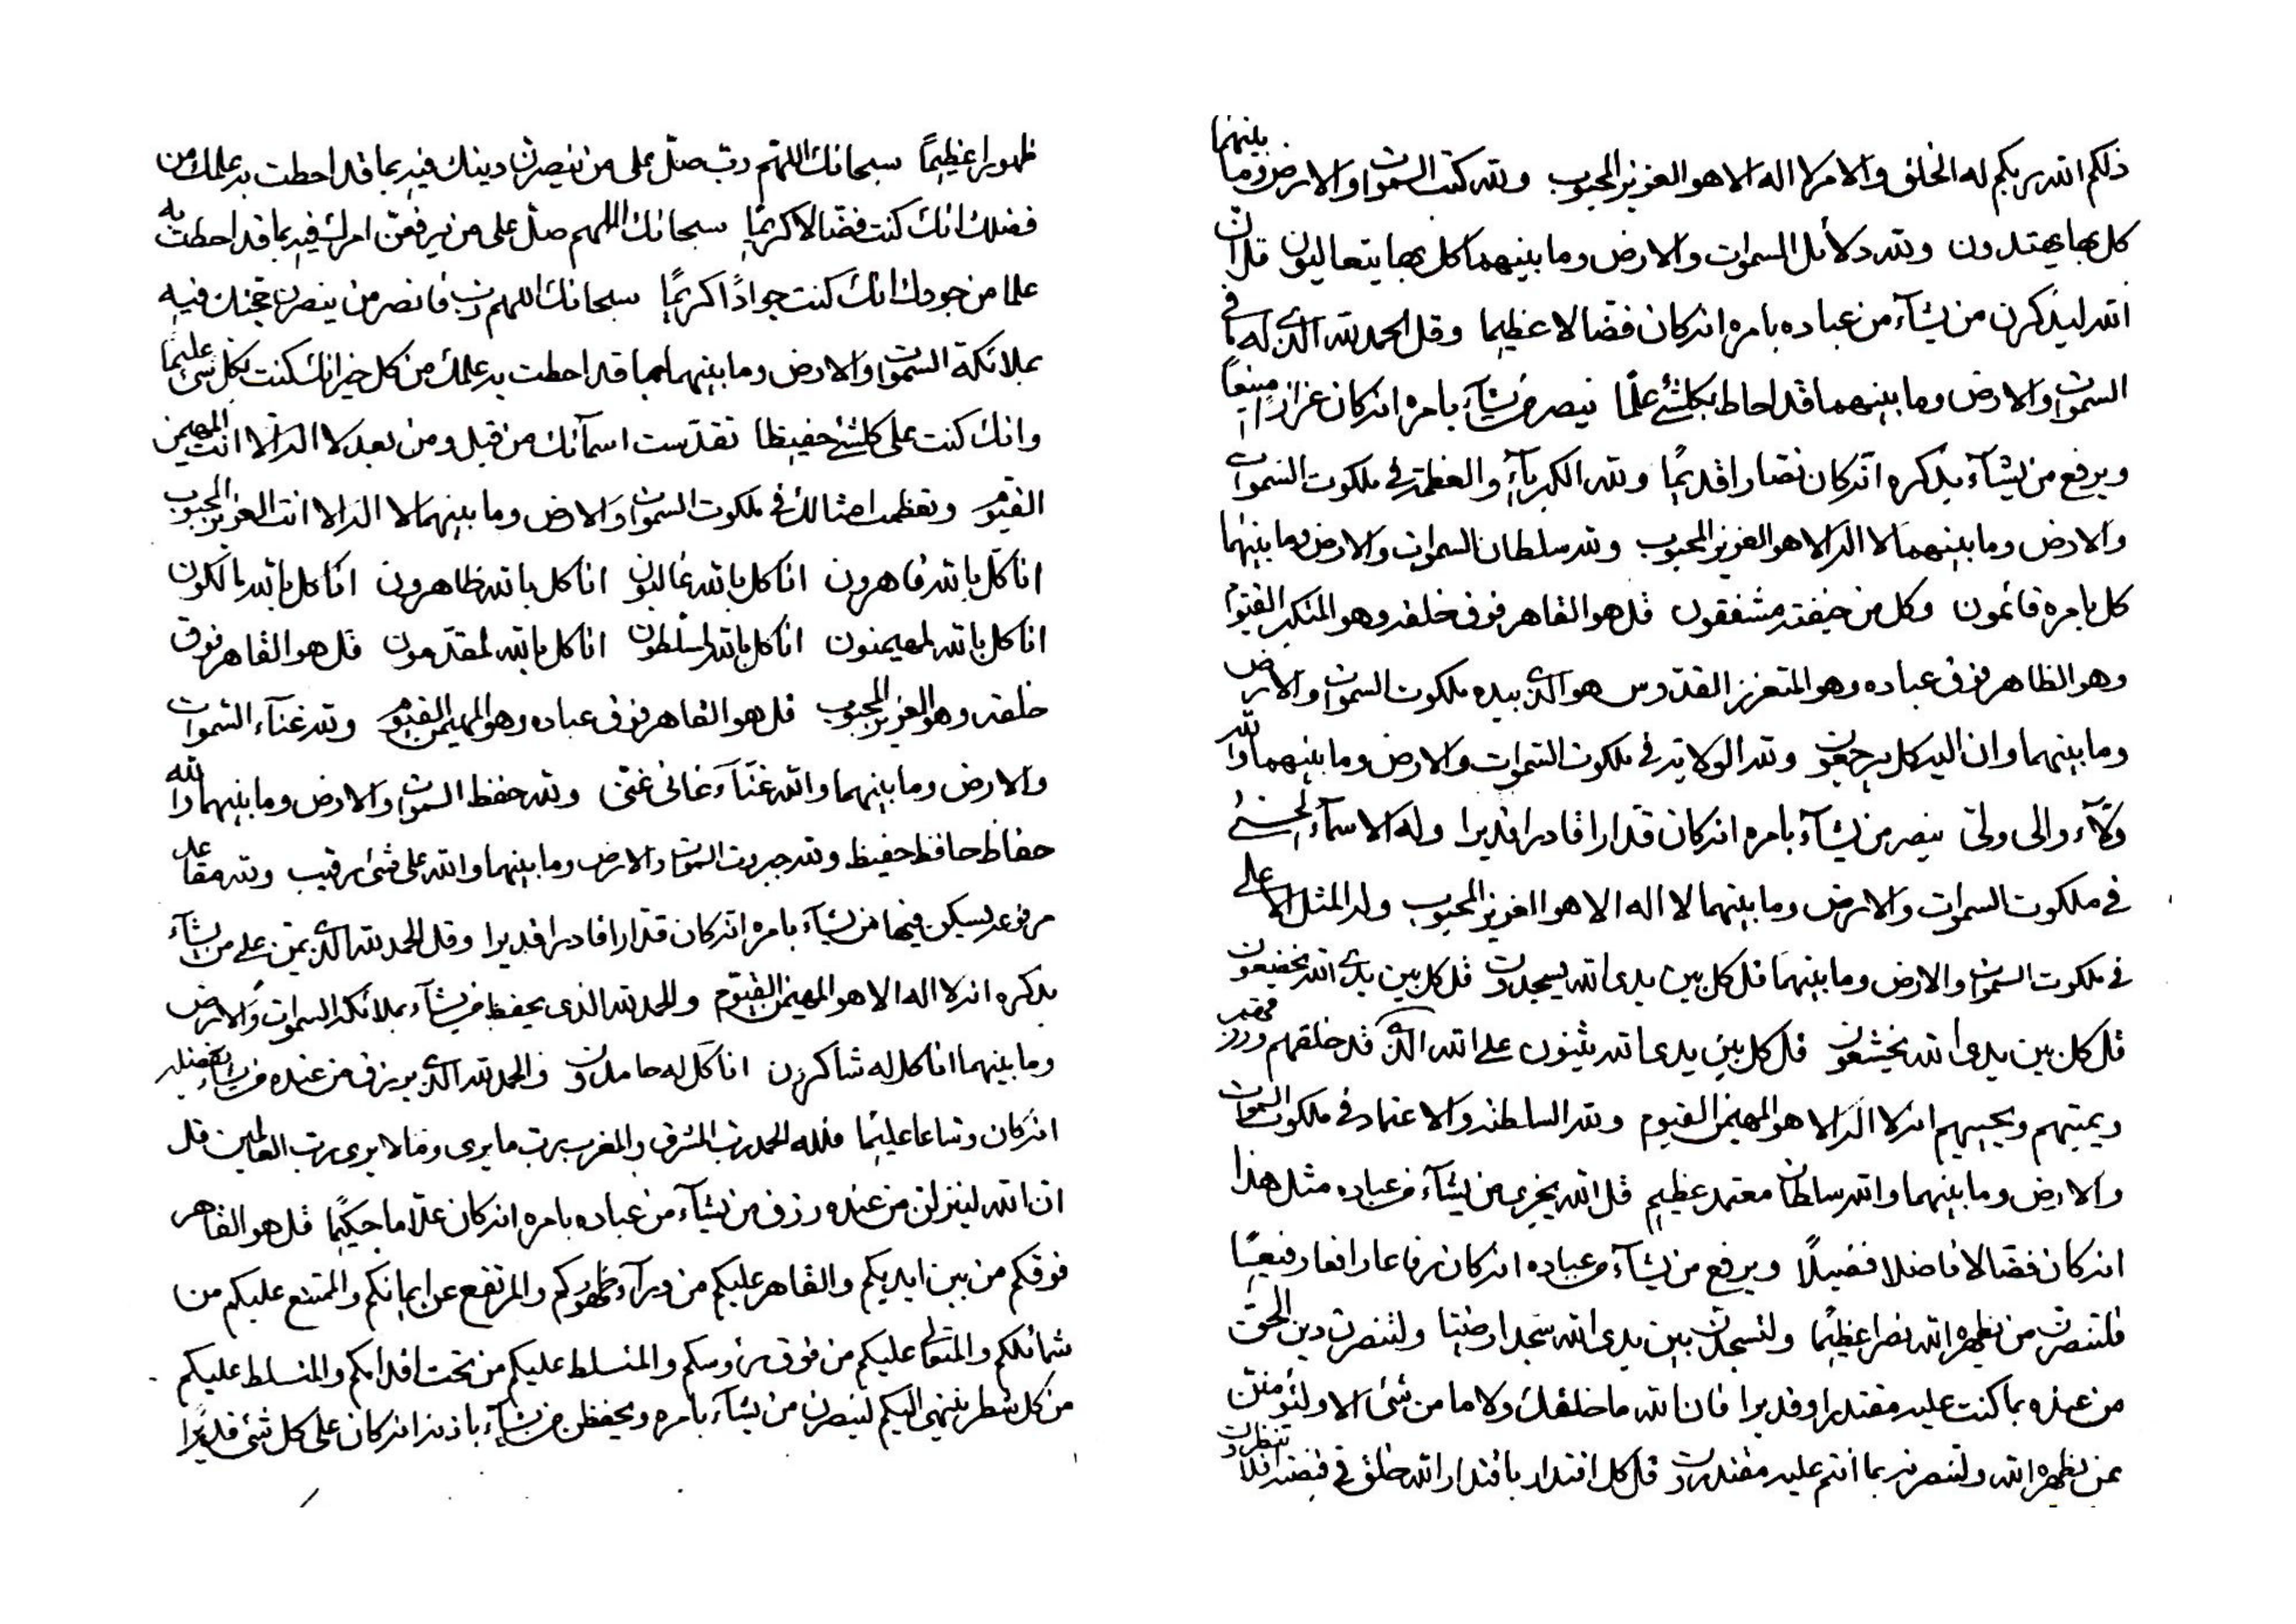 ذلكم الله ربكم له الخلق والامر لا اله الا هو العزيز المحبوب ولله كتب السموات والارض وما بينهما
كل بها يهتدون ولله دلائل السموات والارض وما بينهما كل بها يتعاليون قل ان
الله ليذكرن من يشآء من عباده بامره انه كان فضالا عظيما وقل الحمد لله الذي له ما في
السموات والارض وما بينهما قد احاط بكلشئ علمًا ينصر من يشآء بامره انه كان عزازا منيعًا
ويرفع من يشآء بذكره انه كان نصارا قديمًا ولله الكبريآء والعظمة في ملكوت السموات
والارض وما بينهما لا اله الا هو العزيز المحبوب ولله سلطان السموات والارض وما بينهما
كل بامره قائمون وكل من خيفته مشفقون قل هو القاهر فوق خلقه وهو المتكبر القيوم
وهو الظاهر فوق عباده وهو المتعزز القدوس هو الذي بيده ملكوت السموات والارض
وما بينهما وان اليه كل يرجعون ولله الولاية في ملكوت السموات والارض وما بينهما والله
ولآء والى ولي ينصر من يشآء بامره انه كان قدارا قادرا قديرا وله الاسمآء الحسنى
في ملكوت السموات والارض وما بينهما لا اله الا هو العزيز المحبوب وله المثل الاعلى
في ملكوت السموات والارض وما بينهما قل كل بين يدى الله يسجدون قل كل بين يدي الله يخضعون
قل كل بين يدى الله يخشعون قل كل بين يدى الله يثنون على الله الذي قد خلقهم ورزقهم
ويميتهم ويحييهم انه لا اله الا هو المهيمن القيوم ولله السلطنة والاعتماد في ملكوت السموات
والارض وما بينهما والله سلطان معتمد عظيم قل الله يجزى من يشآء من عباده مثل هذا
انه كان فضالا فاضلا فضيلًا ويرفع من يشآء من عباده انه كان رفاعا رافعا رفيعًا
فلتنصرن من يظهره الله نصرا عظيمًا ولتسجدن بين يدى الله سجدا رضيًا ولتنصرن دين الحق
من عنده بما كنت عليه مقتدرا وقديرا فان الله ما خلقك ولا ما من شئ الا ولتؤمنن
بمن يظهره الله ولتنصرنه بما انتم عليه مقتدرون قل كل اقتدار باقتدار الله خلق في قبضته افلا تنظرون
ظهورا عظيمًا سبحانك اللهم رب صل على من ينصرن دينك فيه بما قد احطت به علمك من
فضلك انك كنت فضالا كريمًا سبحانك اللهم صل على من يرفعن امرك فيه بما قد احطت به
علما من جودك انك كنت جوادًا كريمًا سبحانك اللهم رب فانصر من ينصرن فيه
بملائكة السموات والارض وما بينهما بما قد احطت به علمك من كل خير انك كنت بكل شئ عليمًا
وانك كنت على كلشئ حفيظا تقدست اسمآئك من قبل ومن بعد لا اله الا انت المهيمن
القيوم وتعظمت امثالك في ملكوت السموات والارض وما بينهما لا اله الا انت العزيز المحبوب
انا كل بالله قاهرون انا كل بالله غالبون انا كل بالله ظاهرون انا كل بالله مالكون
انا كل بالله لمهيمنون انا كل بالله لمسلطون انا كل بالله لمقدمون قل هو القاهر فوق
خلقه وهو العزيز المحبوب قل هو القاهر فوق عباده وهو المهيمن القيوم ولله غنآء السموات
والارض وما بينهما والله غنآء غانى غنى ولله حفظ السموات والارض وما بينهما والله
حفاظ حافظ حفيظ ولله جبروت السموات والارض وما بينهما والله على شئ رقيب ولله مقاعد
مرفوعه يسكن فيها من يشآء بامره انه كان قدارا قادرا قديرا وقل الحمد لله الذي يمن على من يشآء
بذكره انه لا اله الا هو المهيمن القيوم والحمد لله الذى يحفظ من يشآء بملائكة السموات والارض
وما بينهما انا كل له شاكرون انا كل له حامدون والحمد لله الذي يرزق من عنده من يشآء بفضله
انه كان وساعا عليمًا فلله الحمد رب المشرق والمغرب رب ما يرى وما لا يرى رب العالمين قل
ان الله لينزلن من عنده رزق من يشآء من عباده بامره انه كان علاما حكيمًا قل هو القاهر
فوقكم من بين ايديكم والقاهر عليكم من ورآء ظهوركم والمرتفع عن ايمانكم والممتنع عليكم من
شمائلكم والمتعالى عليكم من فوق رؤوسكم والمتسلط عليكم من تحت اقدامكم والمتسلط عليكم
من كل شطر ينتهى اليكم لينصرن من يشآء بامره ويحفظن من يشآء باذنه انه كان على كل شئ قديرًا